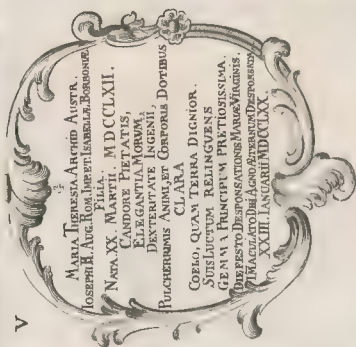 V
MARIA THERESIA ARCHID AUSTR.
IOSEPHI II. AUG. ROM. IMPET. ISABELLÆ BORBONIÆ
FILIA.
NATA. XX MARTII. MDCCLXII.
CANDORE PIETATIS,
ELEGANTIA MORUM,
DEXTERITATE INGENII,
PULCHERRIMIS ANIMI, ET CORPORIS DOTIBUS
CLARA
COELO, QUAM TERRA DIGNIOR.
SUIS LUCTUM RELINQUENS
GEMMA PRINCIPUM PRETIOSISSIMA.
DIE FESTO DESPONSATIONIS MARIÆ VIRGINIS.
IMACULATO DEI AGNO ÆTERNUM DESPONSATA
XXIII. IANUARII MDCCLXX.